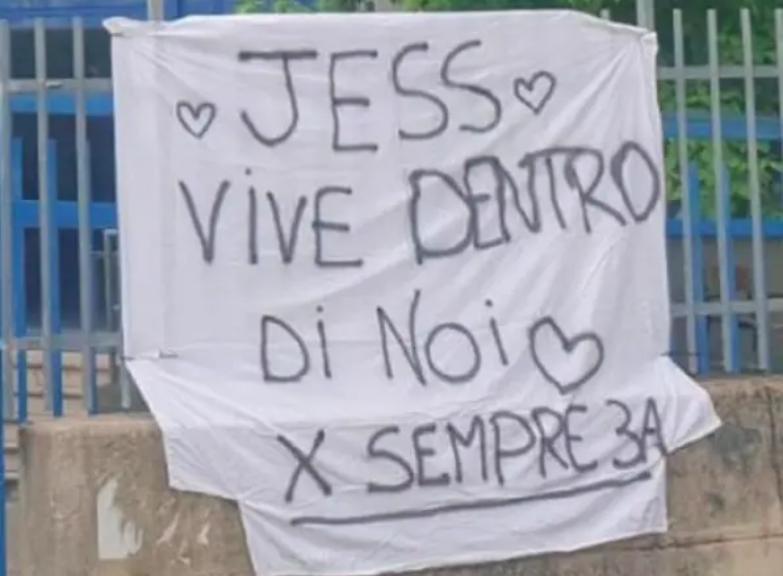 ♡ JESS ♡
ViVE DENTRO
Di NOi ♡
X SEMPRE 3A